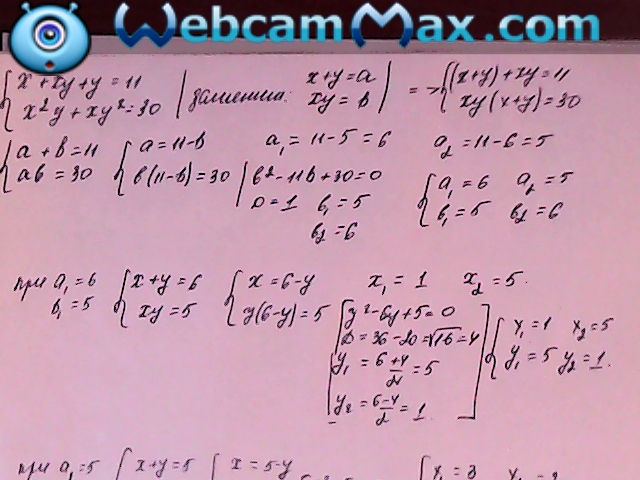 WebcamMax.com
{ x + xy + y = 11
x²y + xy² = 30 | замена: x+y = a
xy = b | => { (x+y) + xy = 11
xy(x+y) = 30
{ a + b = 11
ab = 30
{ a = 11-b
b(11-b) = 30 | b² - 11b + 30 = 0
D = 1 b₁ = 5
b₂ = 6
a₁ = 11-5 = 6 a₂ = 11-6 = 5
{ a₁ = 6 a₂ = 5
b₁ = 5 b₂ = 6
при a₁ = 6
b₁ = 5
{ x+y = 6
xy = 5
{ x = 6-y
y(6-y) = 5
x₁ = 1 x₂ = 5.
[ y² - 6y + 5 = 0
D = 36 - 20 = √16 = 4
y₁ = 6+4/2 = 5
y₂ = 6-4/2 = 1 ]
{ x₁ = 1 x₂ = 5
y₁ = 5 y₂ = 1.
при a₁ = 5 { x+y = 5 { x = 5-y { x₁ = 3